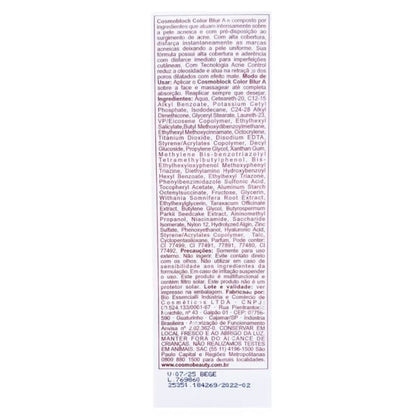 Cosmoblock Color Blur A é composto por
ingredientes que atuam intensamente sobre
a pele acneica e com pré-disposição ao
surgimento de acne. Com alta cobertura,
disfarça instantaneamente as marcas
acneicas deixando a pele uniforme. Sua
fórmula possui alta cobertura e aderência
com disfarce imediato para imperfeições
cutâneas. Com Tecnologia Acne Control
reduz a oleosidade e alua na retração dos
poros dilatados com efeito mate. Modo de
Usar: Aplicar o Cosmoblock Color Blur A
sobre a face e massagear até completa
absorção. Reaplicar sempre que desejar.
Ingredientes: Aqua, Ceteareth-20, C12-15
Alkyl Benzoate, Potassium Cetyl
Phosphate, Isododecane, C24-28 Alkyl
Dimethicone, Glyceryl Stearate, Laureth-23,
VP/Eicosene Copolymer, Ethylhexyl
Salicylate, Butyl Methoxydibenzoylmethane,
Ethylhexyl Methoxycinnamate, Octocrylene,
Titanium Dioxide, Disodium EDTA,
Styrene/Acrylates Copolymer, Decyl
Glucoside, Propylene Glycol, Xanthan Gum,
Methylene Bis-benzotriazolyl
Tetramethylbutylphenol, Bis-
Ethylhexyloxyphenol Methoxyphenyl
Triazine, Diethylamino Hydroxybenzoyl
Hexyl Benzoate, Ethylhexyl Triazone,
Phenylbenzimidazole Sulfonic Acid,
Tocopheryl Acetate, Aluminum Starch
Octenylsuccinate, Fructose, Glycerin,
Withania Somnifera Root Extract,
Ethylhexylglycerin, Taraxacum Officinale
Extract, Butylene Glycol, Butyrospermum
Parkii Seedcake Extract, Aminomethyl
Propanol, Niacinamide, Saccharide
Isomerate, Nylon 12, Hydrolyzed Algin, Zinc
Sulfate, Phenoxyethanol, Hyaluronic Acid,
Styrene/Acrylates Copolymer, Talc,
Cyclopentasiloxane, Parfum. Pode conter:
CI 77499, CI 77491, 77891, 77480, CI
77492. Precauções: Somente para uso
externo. Não ingerir. Evite contato direto
com os olhos. Não utilizar em caso de
sensibilidade aos ingredientes da
formulação. Em caso de irritação suspender
o uso. Este produto é multifuncional e
contém filtro solar. Este produto não é um
protetor solar. Lote e validade: ver
impresso na embalagem. Fabricado por:
Bio Essenciali Indústria e Comércio de
Cosméticos LTDA - CNPJ:
Nº 43 - Galpão 01 - CEP: 07756-
590 - Guaturinho - Cajamar/SP - Indústria
Brasileira - Autorização de Funcionamento
Anvisa nº 2.02.362-0. CONSERVAR EM
LOCAL FRESCO E AO ABRIGO DA LUZ.
MANTER FORA DO ALCANCE DE
CRIANÇAS. NÃO REALIZAMOS TESTES
EM ANIMAIS. SAC (55 11) 4196-1500 São
Paulo Capital e Regiões Metropolitanas
0800 890 1500 para demais localidades.
www.cosmobeauty.com.br
V 07/25 BEGE
L 769860
25351.184269/2022-02